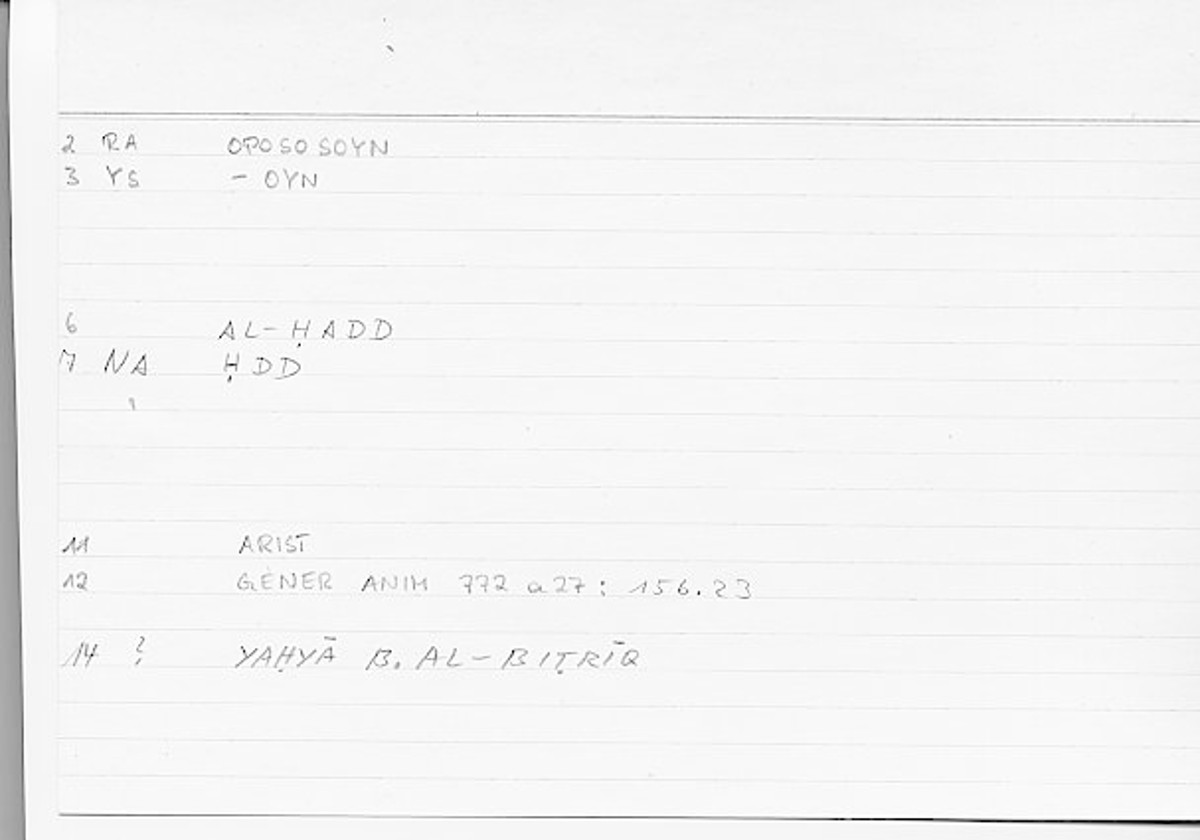 2 RA OPOSO SOYN
3 YS - OYN
6 AL-ḤADD
7 NA ḤDD
11 ARIST
12 GENER ANIM 772 a27: 156.23
14 ? YAḤYĀ B. AL-BIṬRĪQ